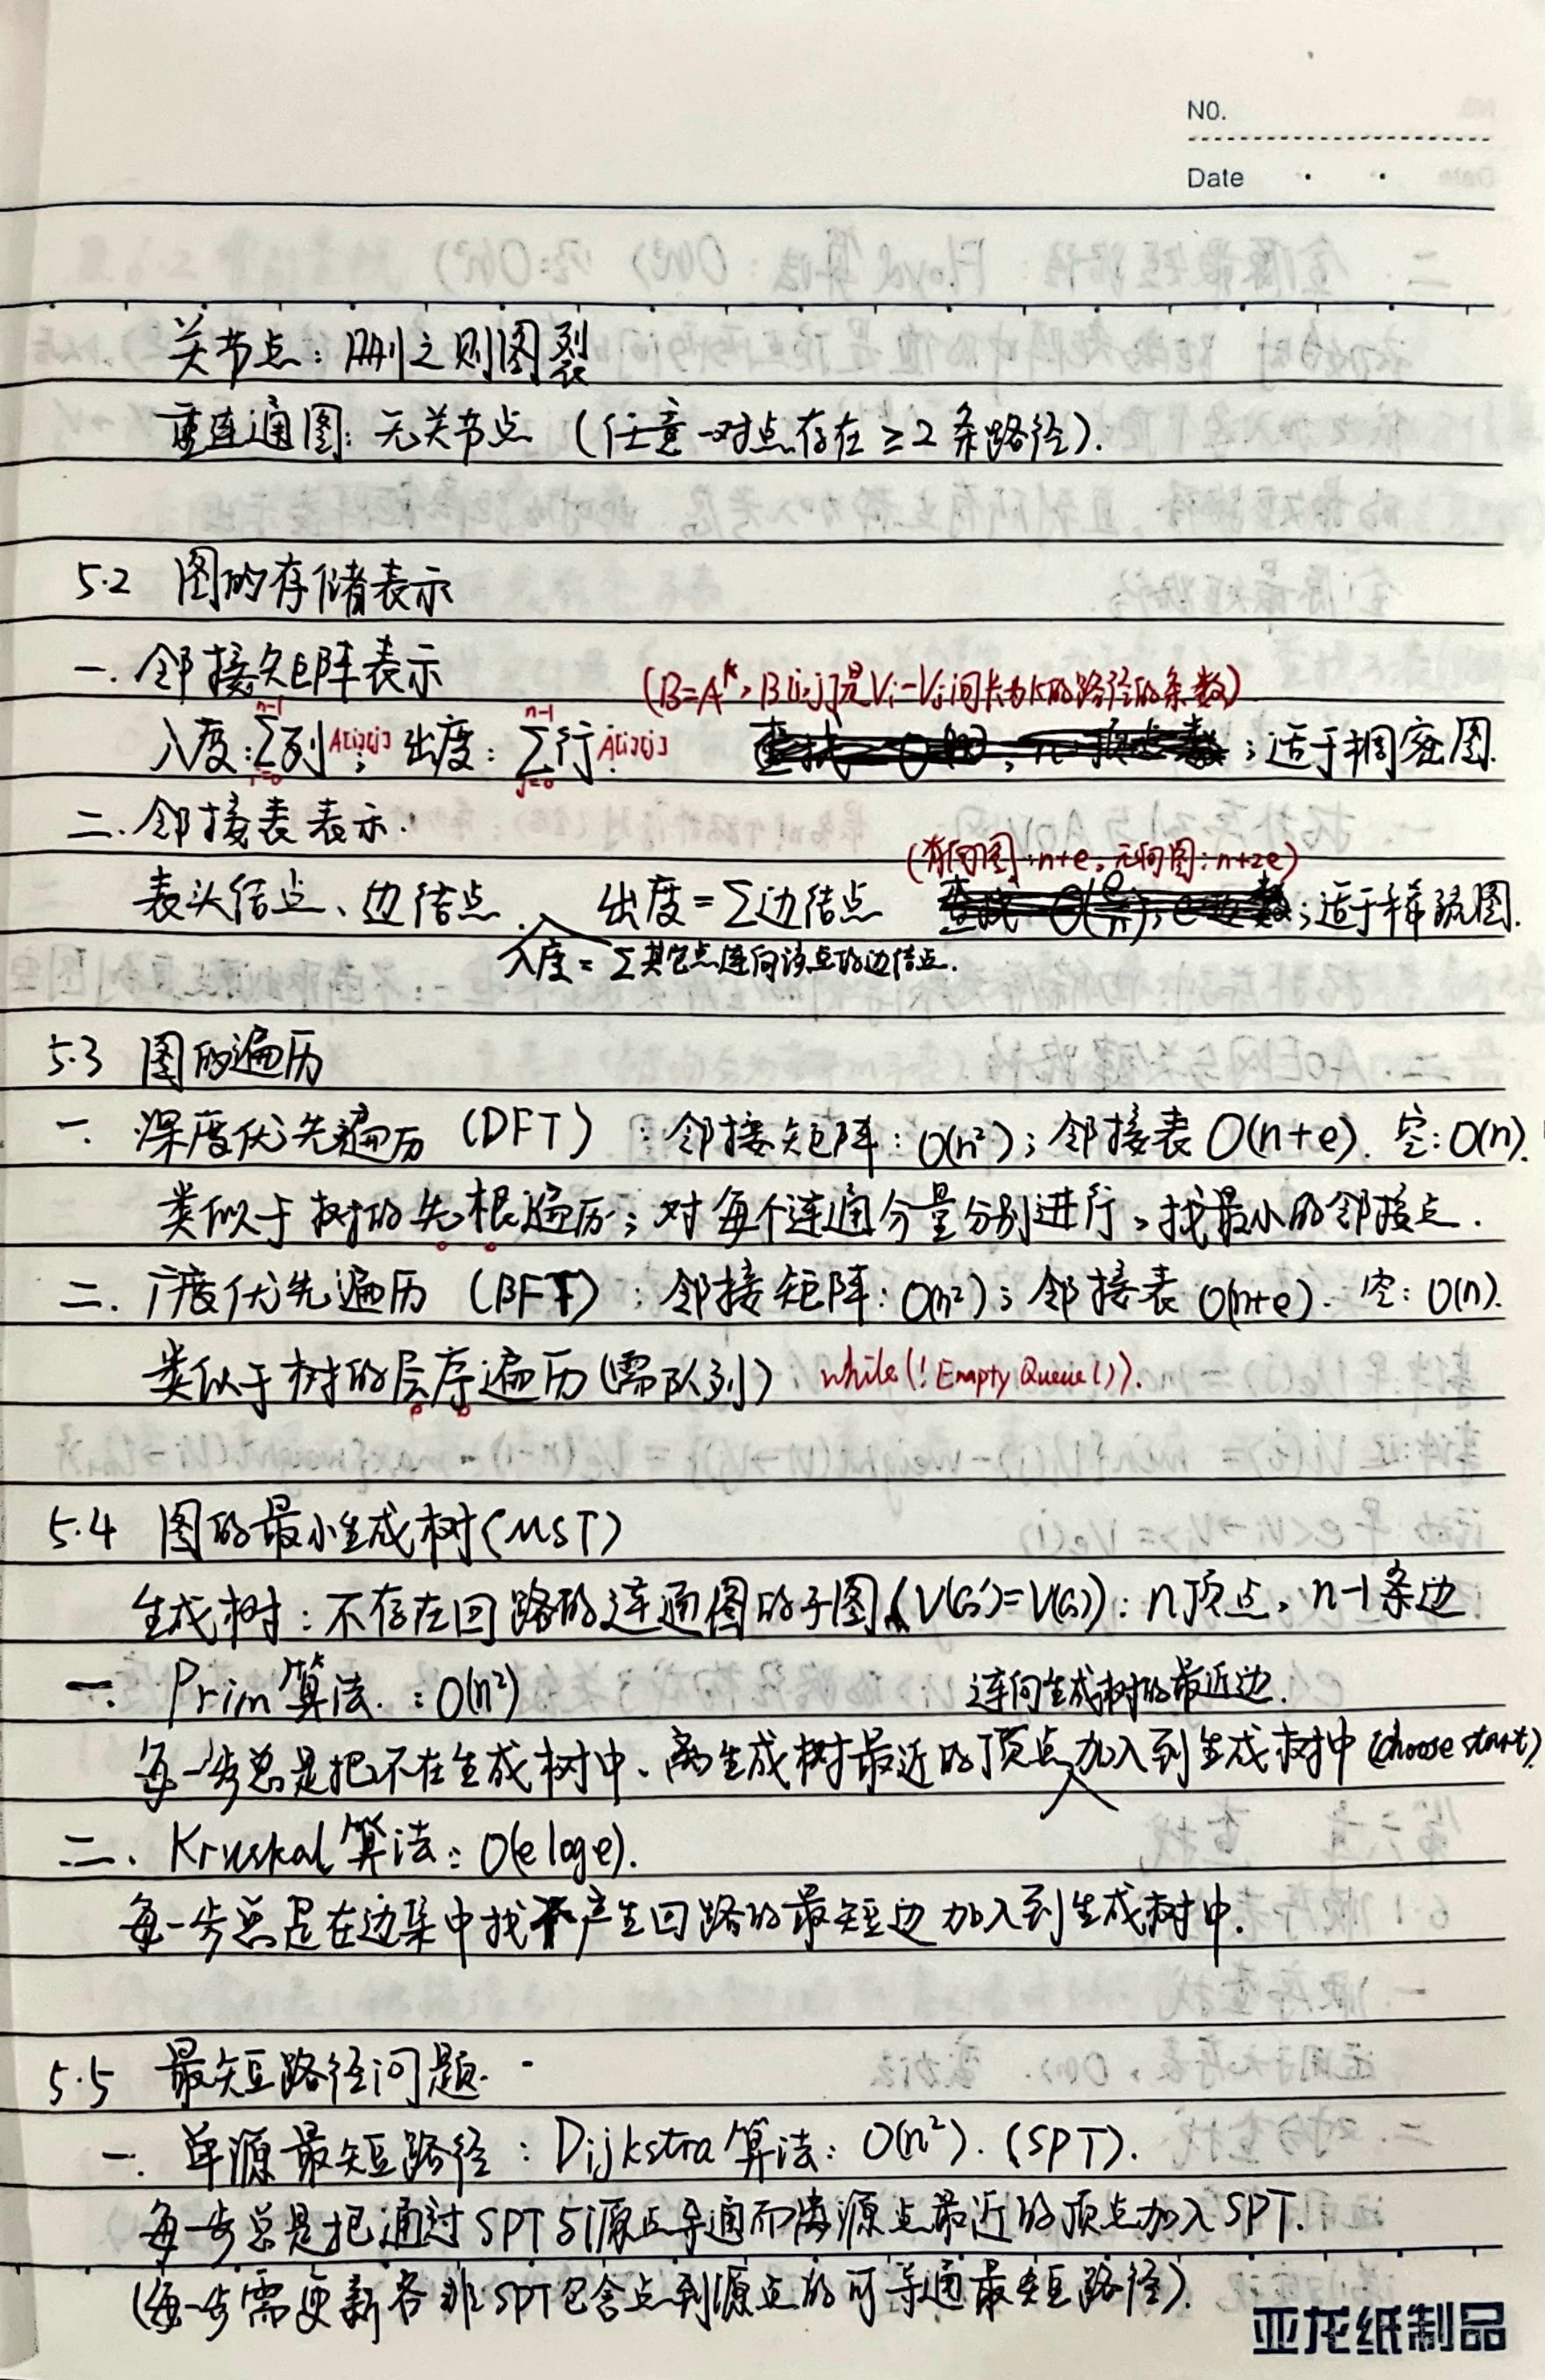 NO.
Date
关节点：删之则图裂
重连通图：无关节点（任意一对点存在≥2条路径).
5.2 图的存储表示
一. 邻接矩阵表示
(B=A^k, B[i,j]是Vi-Vj间长为k的路径的条数)
入度：∑_{i=0}^{n-1}列A[i][j]；出度：∑_{j=0}^{n-1}行A[i][j] ；适于稠密图.
二. 邻接表表示.
(有向图：n+e，无向图：n+2e)
表头结点、边结点. 出度=∑边结点 ；适于稀疏图.
入度=∑其它点连向该点的边结点.
5.3 图的遍历
一. 深度优先遍历（DFT）：邻接矩阵：O(n²)；邻接表O(n+e). 空：O(n).
类似于树的先根遍历；对每个连通分量分别进行，找最小的邻接点.
二. 广度优先遍历（BFT）；邻接矩阵：O(n²)；邻接表O(n+e). 空：O(n).
类似于树的层序遍历(需队列) while(!EmptyQueue()).
5.4 图的最小生成树(MST)
生成树：不存在回路的连通图的子图(V(G')=V(G))：n顶点，n-1条边
一. Prim算法.：O(n²)
连向生成树的最近边.
每一步总是把不在生成树中、离生成树最近的顶点加入到生成树中(choose start).
二. Kruskal算法：O(eloge).
每一步总是在边集中找不产生回路的最短边加入到生成树中.
5.5 最短路径问题.
一. 单源最短路径：Dijkstra算法：O(n²). (SPT).
每一步总是把通过SPT与源点导通而离源点最近的顶点加入SPT.
(每一步需更新各非SPT包含点到源点的可导通最短路径).
亚龙纸制品